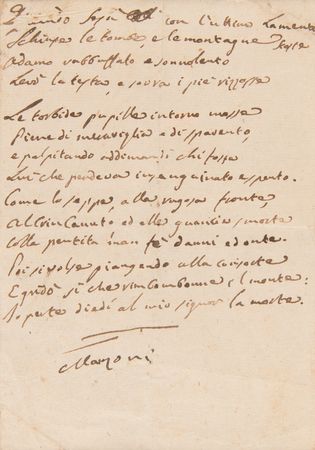 Quando Gesù con l'ultimo Lamento
Schiuse le tombe, e le montagne scosse
Adamo rabbuffato e sonnolento
Levò la testa, e sovra i piè rizzosse
Le torbide pupille intorno mosse
Piene di maraviglia e di spavento,
e palpitando addimandò chi fosse
Lui che pendeva insanguinato e spento.
Come lo seppe, alla rugosa fronte
Al Crin Canuto ed alle guancie smorte
Colla pentita man fè danni ed onte.
Poi si volse piangendo alla consorte
E gridò sì che rimbombonne il monte:
Io per te diedi al mio signor la morte.
Manzoni